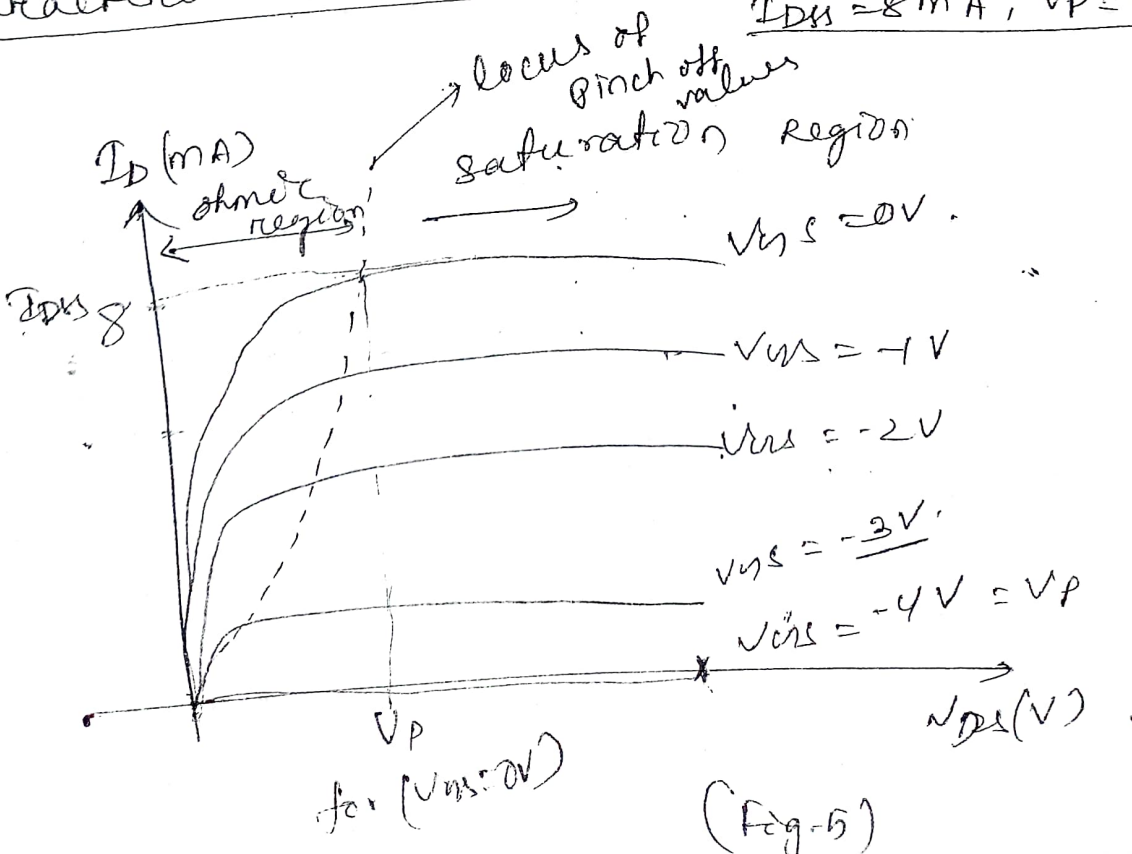 I_DSS = 8 mA, VP =
locus of
Pinch off
values
I_D (mA)
ohmic
region
saturation Region
V_GS = 0V.
I_DSS 8
V_GS = -1 V
V_GS = -2 V
V_GS = -3 V.
V_GS = -4 V = V_P
V_P
V_DS (V)
for (V_GS = 0V)
(Fig-5)